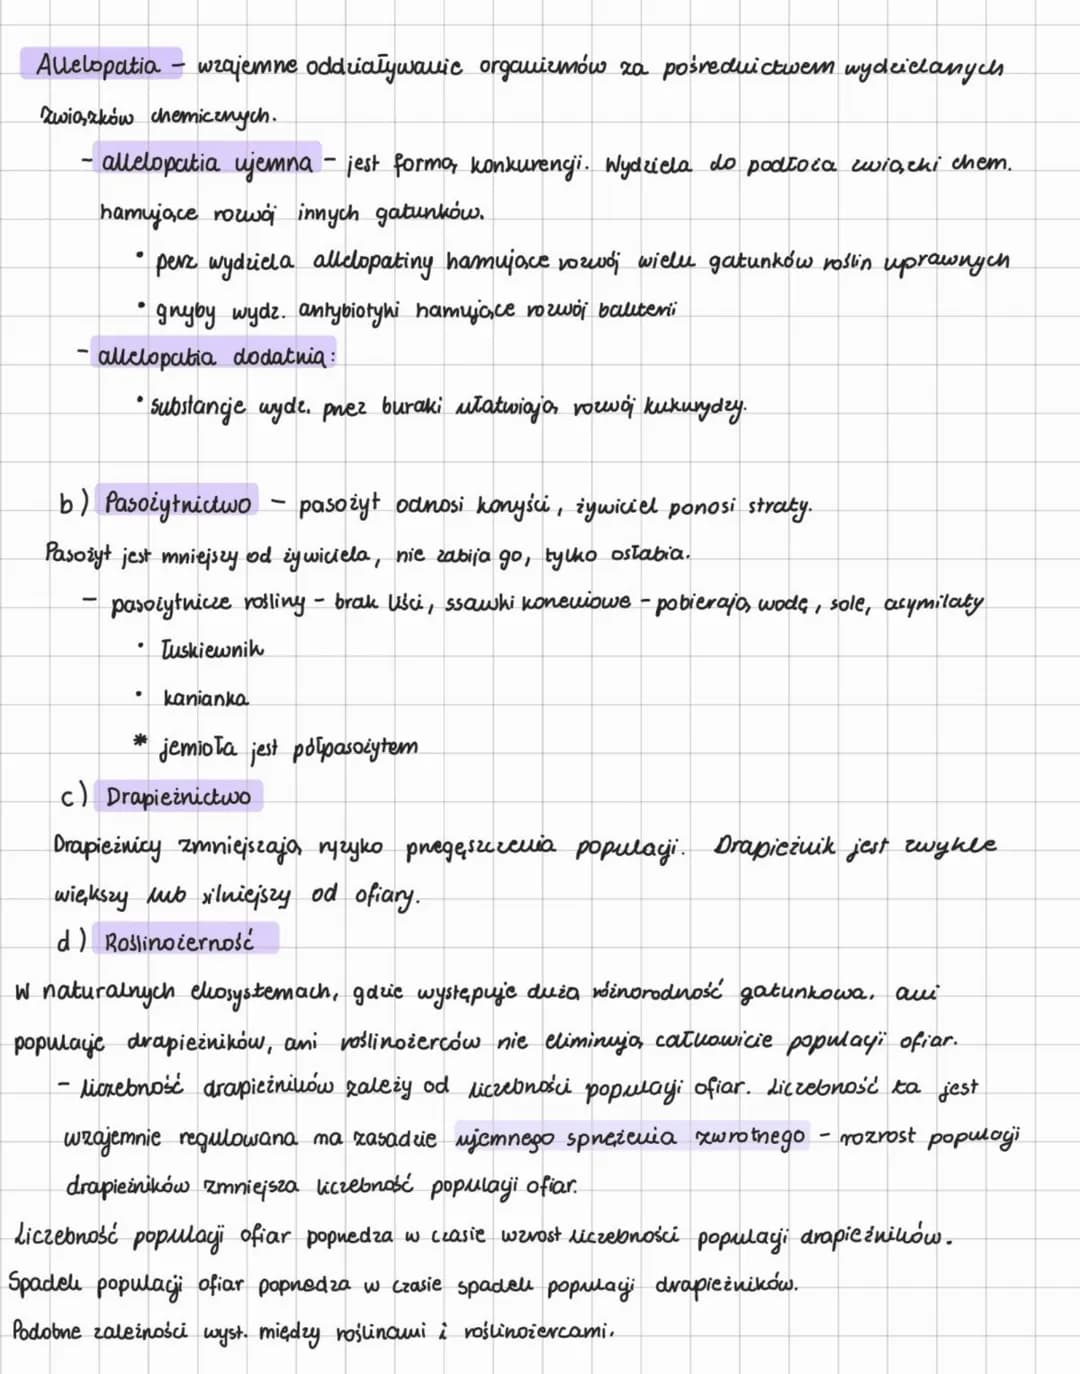 Allelopatia – wzajemne oddziaływanie organizmów za pośrednictwem wydzielanych
związków chemicznych.
- allelopatia ujemna – jest formą konkurencji. Wydziela do podłoża związki chem.
hamujące rozwój innych gatunków.
• perz wydziela allelopatiny hamujące rozwój wielu gatunków roślin uprawnych
• grzyby wydz. antybiotyki hamujące rozwój bakterii
- allelopatia dodatnia:
• substancje wydz. przez buraki ułatwiają rozwój kukurydzy.
b) Pasożytnictwo – pasożyt odnosi korzyści, żywiciel ponosi straty.
Pasożyt jest mniejszy od żywiciela, nie zabija go, tylko osłabia.
- pasożytnicze rośliny – brak liści, ssawki korzeniowe – pobierają wodę, sole, asymilaty
• łuskiewnik
• kanianka
* jemioła jest półpasożytem
c) Drapieżnictwo
Drapieżnicy zmniejszają ryzyko przegęszczenia populacji. Drapieżnik jest zwykle
większy lub silniejszy od ofiary.
d) Roślinożerność
W naturalnych ekosystemach, gdzie występuje duża różnorodność gatunkowa, ani
populacje drapieżników, ani roślinożerców nie eliminują całkowicie populacji ofiar.
- liczebność drapieżników zależy od liczebności populacji ofiar. Liczebność ta jest
wzajemnie regulowana ma zasadzie ujemnego sprzężenia zwrotnego – rozrost populacji
drapieżników zmniejsza liczebność populacji ofiar.
Liczebność populacji ofiar poprzedza w czasie wzrost liczebności populacji drapieżników.
Spadek populacji ofiar poprzedza w czasie spadek populacji drapieżników.
Podobne zależności wyst. między roślinami i roślinożercami.